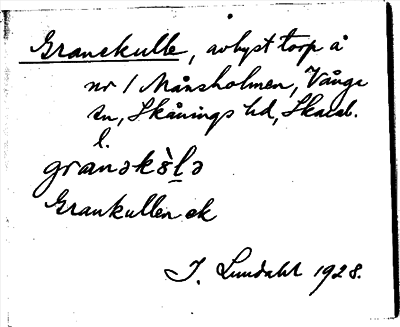 Granekulle, avhyst torp å
nr 1 Månsholmen, Vånge
sn, Skånings hd, Skarab.
l.
granəkὸl̠ə
Grankullen ek
I. Lundahl 1928.